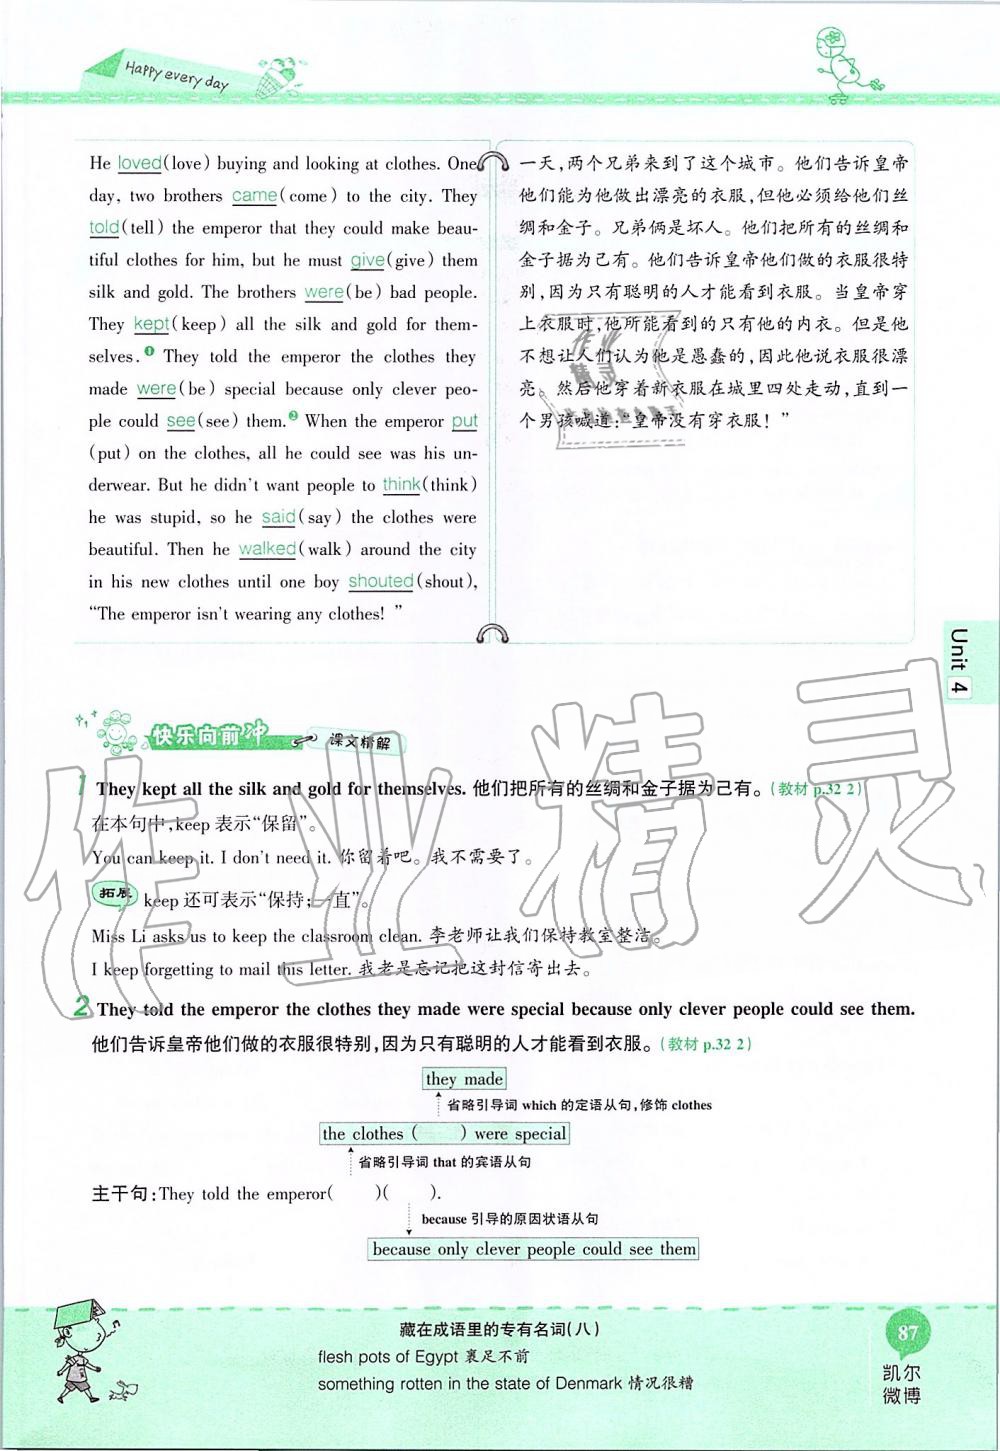 Happy every day
He loved(love) buying and looking at clothes. One
day, two brothers came(come) to the city. They
told(tell) the emperor that they could make beau-
tiful clothes for him, but he must give(give) them
silk and gold. The brothers were(be) bad people.
They kept(keep) all the silk and gold for them-
selves.❶ They told the emperor the clothes they
made were(be) special because only clever peo-
ple could see(see) them.❷ When the emperor put
(put) on the clothes, all he could see was his un-
derwear. But he didn't want people to think(think)
he was stupid, so he said(say) the clothes were
beautiful. Then he walked(walk) around the city
in his new clothes until one boy shouted(shout),
“The emperor isn't wearing any clothes! ”
一天,两个兄弟来到了这个城市。他们告诉皇帝
他们能为他做出漂亮的衣服,但他必须给他们丝
绸和金子。兄弟俩是坏人。他们把所有的丝绸和
金子据为己有。他们告诉皇帝他们做的衣服很特
别,因为只有聪明的人才能看到衣服。当皇帝穿
上衣服时,他所能看到的只有他的内衣。但是他
不想让人们认为他是愚蠢的,因此他说衣服很漂
亮。然后他穿着新衣服在城里四处走动,直到一
个男孩喊道:“皇帝没有穿衣服!”
作业
精灵
Unit 4
快乐向前冲
课文精解
1 They kept all the silk and gold for themselves. 他们把所有的丝绸和金子据为己有。(教材 p.32 2)
在本句中,keep 表示“保留”。
You can keep it. I don't need it. 你留着吧。我不需要了。
拓展 keep 还可表示“保持;一直”。
Miss Li asks us to keep the classroom clean. 李老师让我们保持教室整洁。
I keep forgetting to mail this letter. 我老是忘记把这封信寄出去。
2 They told the emperor the clothes they made were special because only clever people could see them.
他们告诉皇帝他们做的衣服很特别,因为只有聪明的人才能看到衣服。(教材 p.32 2)
they made
省略引导词 which 的定语从句,修饰 clothes
the clothes ( ) were special
省略引导词 that 的宾语从句
主干句:They told the emperor( )( ).
because 引导的原因状语从句
because only clever people could see them
作业精灵
藏在成语里的专有名词(八)
flesh pots of Egypt 裹足不前
something rotten in the state of Denmark 情况很糟
87
凯尔
微博